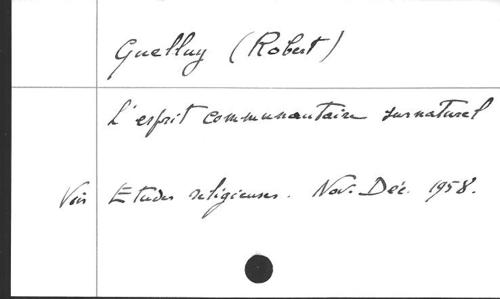 Guelluy (Robert)
L'esprit communautaire surnaturel
Voir Etudes religieuses. Nov. Déc. 1958.